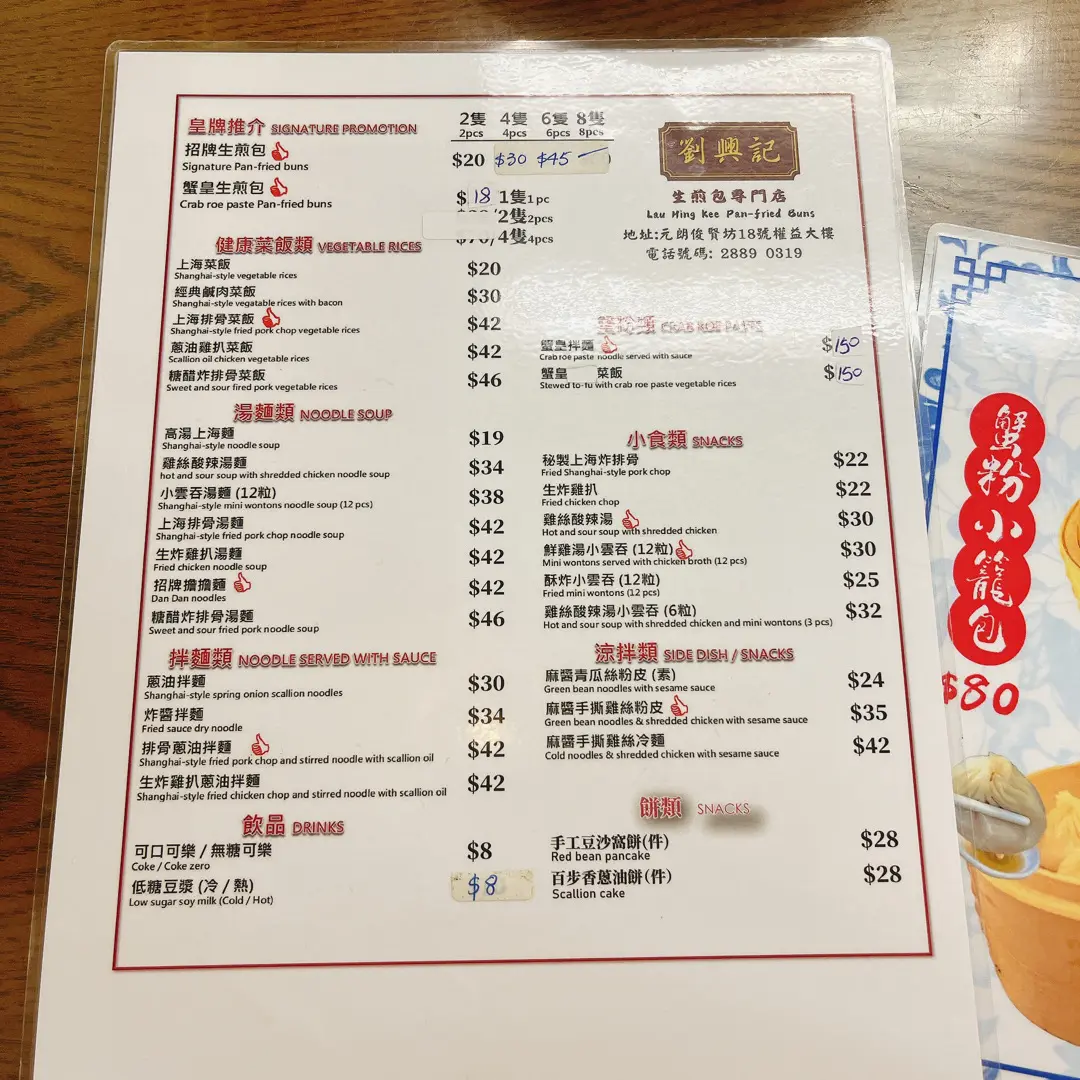 皇牌推介 SIGNATURE PROMOTION
2隻 4隻 6隻 8隻
2pcs 4pcs 6pcs 8pcs
招牌生煎包
Signature Pan-fried buns
$20 $30 $45
蟹皇生煎包
Crab roe paste Pan-fried buns
$18 1隻 1 pc
2隻 2pcs
/4隻 4pcs
健康菜飯類 VEGETABLE RICES
上海菜飯 $20
Shanghai-style vegetable rices
經典鹹肉菜飯 $30
Shanghai-style vegatable rices with bacon
上海排骨菜飯 $42
Shanghai-style fried pork chop vegetable rices
蔥油雞扒菜飯 $42
Scallion oil chicken vegetable rices
糖醋炸排骨菜飯 $46
Sweet and sour fired pork vegetable rices
湯麵類 NOODLE SOUP
高湯上海麵 $19
Shanghai-style noodle soup
雞絲酸辣湯麵 $34
hot and sour soup with shredded chicken noodle soup
小雲吞湯麵 (12粒) $38
Shanghai-style mini wontons noodle soup (12 pcs)
上海排骨湯麵 $42
Shanghai-style fried pork chop noodle soup
生炸雞扒湯麵 $42
Fried chicken noodle soup
招牌擔擔麵 $42
Dan Dan noodles
糖醋炸排骨湯麵 $46
Sweet and sour fried pork noodle soup
拌麵類 NOODLE SERVED WITH SAUCE
蔥油拌麵 $30
Shanghai-style spring onion scallion noodles
炸醬拌麵 $34
Fried sauce dry noodle
排骨蔥油拌麵 $42
Shanghai-style fried pork chop and stirred noodle with scallion oil
生炸雞扒蔥油拌麵 $42
Shanghai-style fried chicken chop and stirred noodle with scallion oil
飲品 DRINKS
可口可樂 / 無糖可樂 $8
Coke / Coke zero
低糖豆漿 (冷 / 熱) $8
Low sugar soy milk (Cold / Hot)
劉興記
生煎包專門店
Lau Hing Kee Pan-fried Buns
地址:元朗俊賢坊18號權益大樓
電話號碼: 2889 0319
蟹粉類 CRAB ROE PASTE
蟹皇拌麵 $150
Crab roe paste noodle served with sauce
蟹皇 菜飯 $150
Stewed to-fu with crab roe paste vegetable rices
小食類 SNACKS
秘製上海炸排骨 $22
Fried Shanghai-style pork chop
生炸雞扒 $22
Fried chicken chop
雞絲酸辣湯 $30
Hot and sour soup with shredded chicken
鮮雞湯小雲吞 (12粒) $30
Mini wontons served with chicken broth (12 pcs)
酥炸小雲吞 (12粒) $25
Fried mini wontons (12 pcs)
雞絲酸辣湯小雲吞 (6粒) $32
Hot and sour soup with shredded chicken and mini wontons (3 pcs)
涼拌類 SIDE DISH / SNACKS
麻醬青瓜絲粉皮 (素) $24
Green bean noodles with sesame sauce
麻醬手撕雞絲粉皮 $35
Green bean noodles & shredded chicken with sesame sauce
麻醬手撕雞絲冷麵 $42
Cold noodles & shredded chicken with sesame sauce
餅類 SNACKS
手工豆沙窩餅(件) $28
Red bean pancake
百步香蔥油餅(件) $28
Scallion cake
蟹粉小籠包
$80